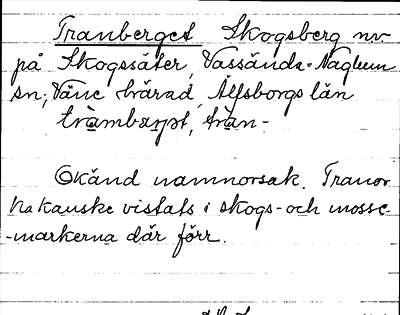 Tranberget Skogsberg nv
på Skogssäter, Vassända-Naglum
sn; Väne härad, Älfsborgs län
tràmbærjət, tràn-
Okänd namnorsak. Tranor
ha kanske vistats i skogs- och mosse-
-markerna där förr.